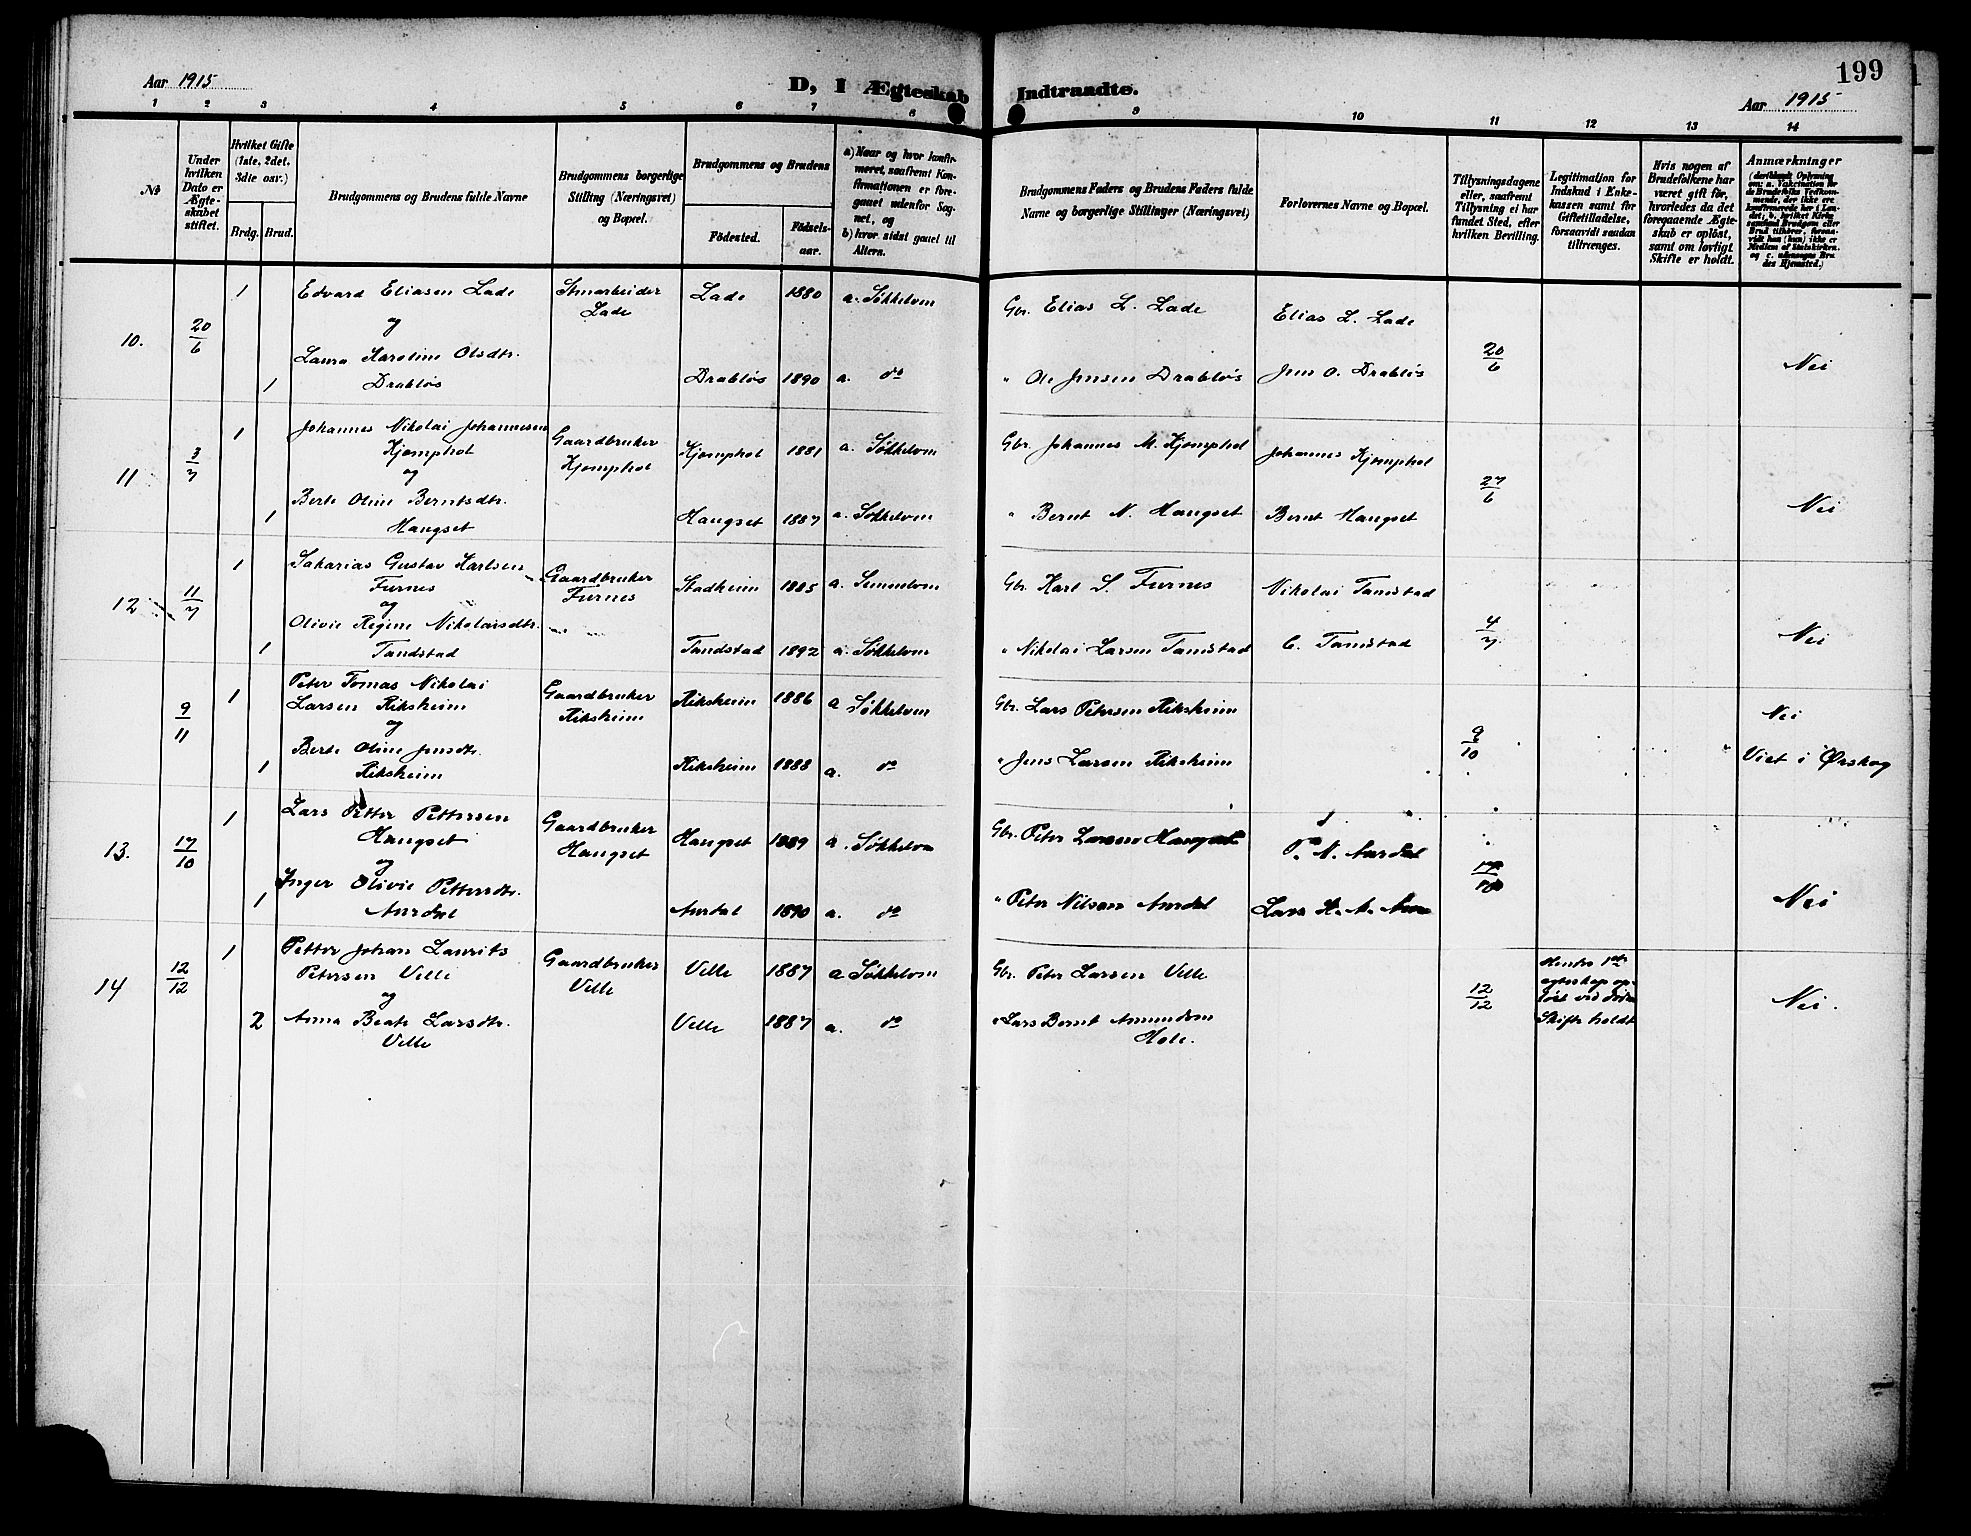 199
Aar 1915
D, I Ægteskab Indtraadte.
Aar 1915
1 2 3 4 5 6 7 8 9 10 11 12 13 14
No
Under hvilken Dato er Ægteskabet stiftet.
Hvilket Gifte (1ste, 2det, 3die osv.)
Brdg. Brud.
Brudgommens og Brudens fulde Navne
Brudgommens borgerlige Stilling (Næringsvei) og Bopæl.
Brudgommens og Brudens
Födested. Födselsaar.
a) Naar og hvor konfirmeret, saafremt Konfirmationen er foregaaet udenfor Sognet, og
b) hvor sidst gaaet til Alters.
Brudgommens Faders og Brudens Faders fulde Navne og borgerlige Stillinger (Næringsvei)
Forlovernes Navne og Bopæl.
Tillysningsdagene eller, saafremt Tillysning ei har fundet Sted, efter hvilken Bevilling.
Legitimation for Indskud i Enkekassen samt for Giftetilladelse, forsaavidt saadan tiltrænges.
Hvis nogen af Brudefolkene har været gift før, hvorledes da det foregaaende Ægteskab er oplöst, samt om lovligt Skifte er holdt.
Anmærkninger
10. 20/6 1 Edvard Eliasen Lade Lade Lade 1880 a. Søkkelven Gbr. Elias L. Lade Elias L. Lade 20/6
og
Laura Karoline Olsdtr.
1 Drabløs Drabløs 1890 a. do " Ole Jensen Drabløs Jens O. Drabløs Nei
11 3/7 1 Johannes Nikolai Johannesen
Kjemphol Gaardbruker Kjemphol Kjemphol 1881 a. Søkkelven Gbr. Johannes M. Kjemphol Johannes Kjemphol 27/6
og
Berte Oline Berntsdtr.
1 Haugset Haugset 1887 a. Søkkelven " Bernt N. Haugset Bernt Haugset Nei
12 11/7 1 Sakarias Gustav Karlsen
Furnes Gaardbruker Furnes Stadheim 1885 a. Gbr. Karl S. Furnes Nikolai Tandstad 4/7
og
Olivie Regine Nikolaisdtr.
1 Tandstad Tandstad 1892 a. Søkkelven " Nikolai Larsen Tandstad C. Tandstad Nei
9/11 1 Peter Tomas Nikolai
Larsen Riksheim Gaardbruker Riksheim Riksheim 1886 a Søkkelven Gbr. Lars Petersen Riksheim 9/10 Nei
og
Berte Oline Jensdtr.
1 Riksheim Riksheim 1888 a. do " Jens Larsen Riksheim Viet i Ørskog
13. 17/10 1 Lars Petter Pettersen
Haugset Gaardbruker Haugset Haugset 1889 a. Søkkelven Gbr. Peter Larsen Haugset P. N. Aurdal
og
Inger Olivie Pettersdtr.
1 Aurdal Aurdal 1890 a. do " Peter Nilsen Aurdal Nei
14 12/12 1 Petter Johan Laurits
Petersen Velle Gaardbruker Velle Velle 1887 a Søkkelven Gbr. Peter Larsen Velle 12/12
og
2 Anna Beate Larsdtr.
Velle Velle 1887 a. do " Lars Bernt Amundsen
Hole. Skifte holdt Nei.